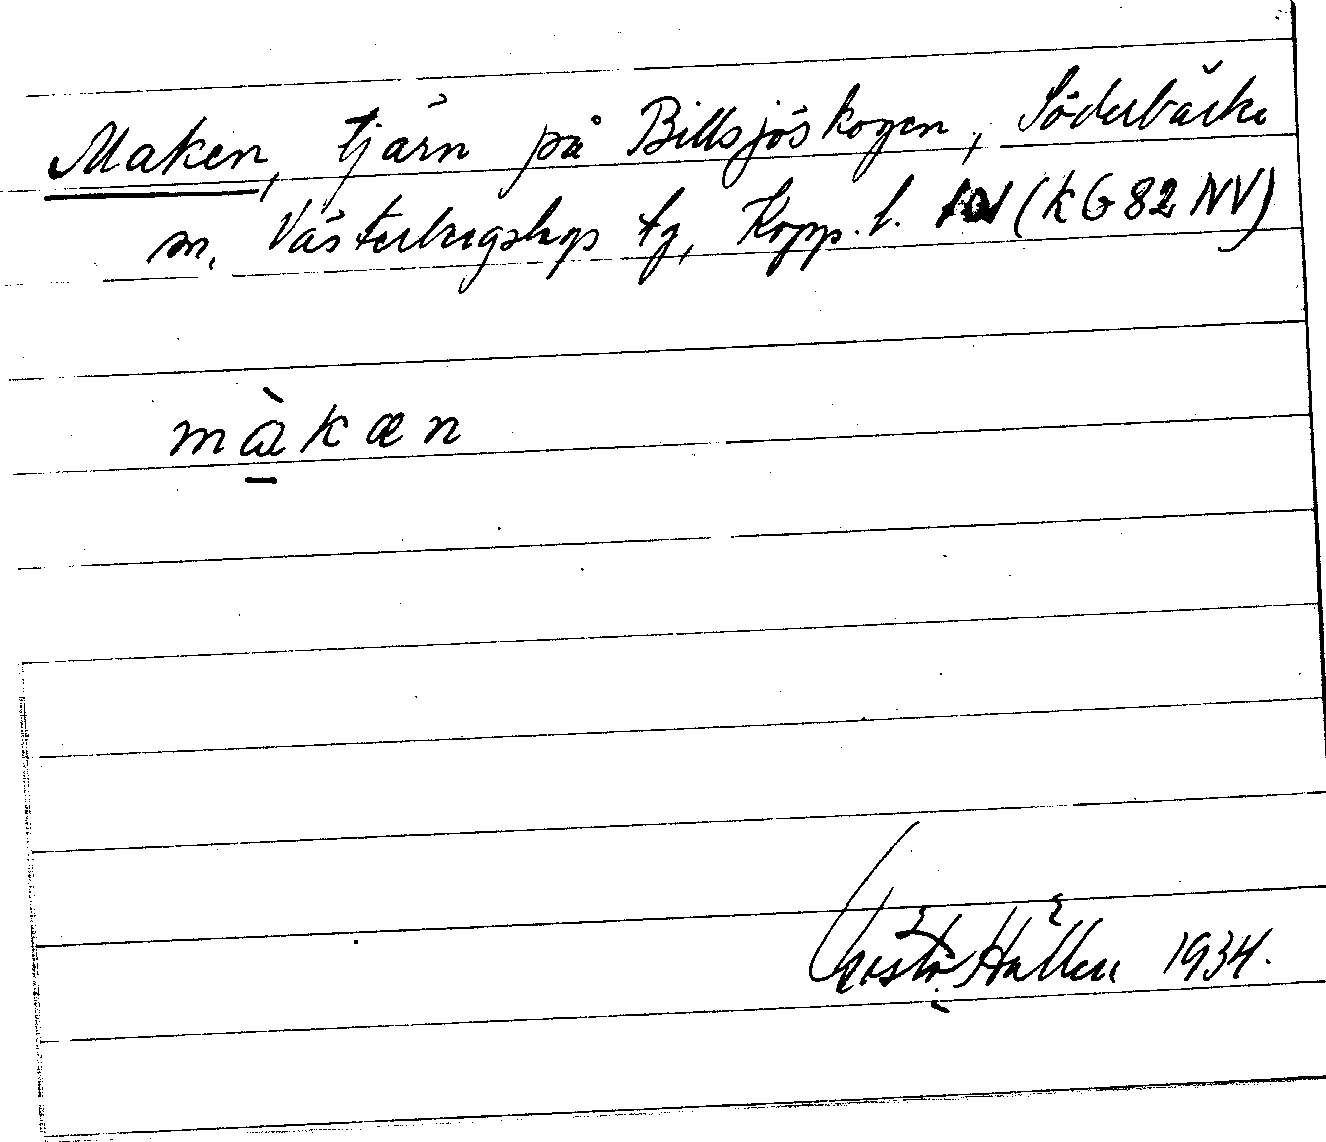 Maken, tjärn på Billsjöskogen, Söderbärke
sn, Västerbergslags tg, Kopp. l. (kG 82 NV)
màkæn
Gösta Hållen 1934.